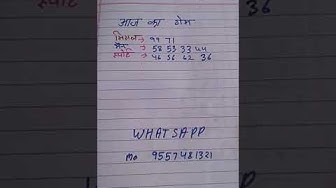 आज का गेम
सिंगल → 99 71
मेन → 58 53 33 44
सपोर्ट → 46 56 62 36
WHATSAPP
Mo 9557481321